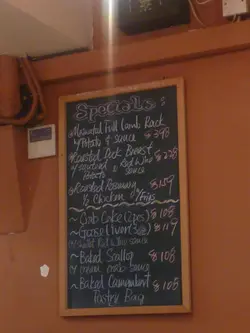 Specials :
Marinated Full Lamb Rack
w/ Potato & sauce $398
Roasted Duck Breast
w/ & Red Wine $238
Potato sauce
Roasted Rosemary $159
1/2 Chicken w/ Fries
~ Crab Cake (2pcs) $108
~ Goose Liver $117
w/ Red Wine sauce
~ Baked Scallop $108
w/ sauce
~ Baked Camembert $108
Pastry Bag